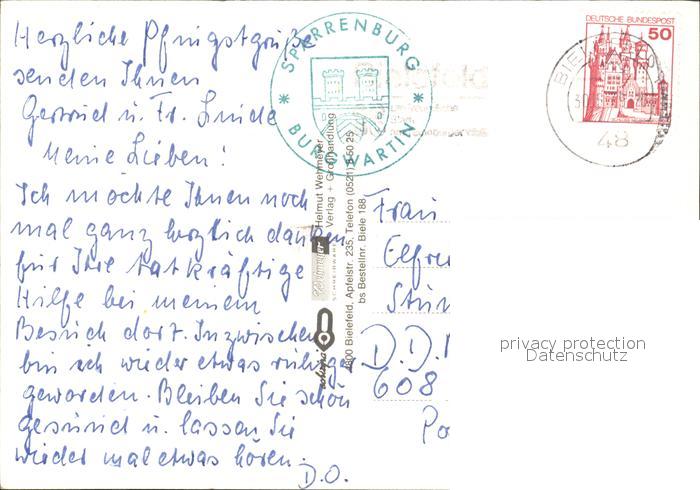 Herzliche Pfingstgrüße
senden Ihnen
Gertrud u. Fr. Linde
Meine Lieben!
Ich möchte Ihnen noch
mal ganz herzlich danken
für Ihre tatkräftige
Hilfe bei meinem
Besuch dort. Inzwischen
bin ich wieder etwas ruhiger
geworden. Bleiben Sie schön
gesund u. lassen Sie
wieder mal etwas hören.
D.O.
SPARRENBURG
BURGWARTIN
DEUTSCHE BUNDESPOST
50
BIE
Helmut Wehmeyer
Verlag + Großhandlung
4800 Bielefeld, Apfelstr. 235, Telefon (0521) 8 50 25
bs Bestellnr. Biele 188
Frau
Elfri
D.D.
608
Po
privacy protection
Datenschutz